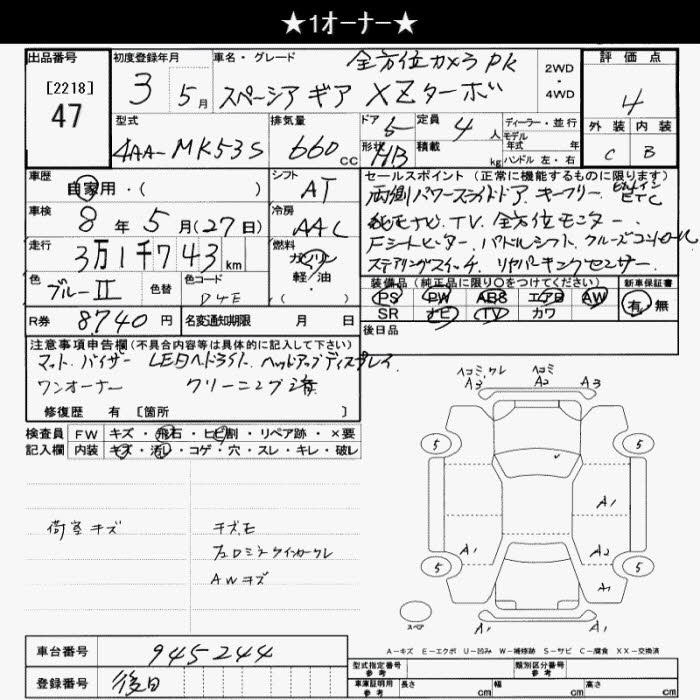 ★1オーナー★
出品番号
[2218]
47
初度登録年月
3 5月
車名・グレード
全方位カメラPK
スペーシア ギア XZターボ
2WD
・
4WD
評価点
4
外装 内装
C B
型式
4AA-MK53S
排気量
660cc
ドア 5
形状 HB
定員 4人
積載 kg
ディーラー・並行
モデル
年式 年
ハンドル 左・右
車歴
自家用・( )
シフト
AT
車検
8年5月(27日)
冷房
AAC
走行
3万1千743km
燃料
ガソリン
軽/油
色
ブルーII
色替
色コード
D4E
R券
8,740円
名変通知期限 月 日
セールスポイント(正常に機能するものに限ります)
両側パワースライドドア. キーフリー. ビルトインETC
純正ナビ. TV. 全方位モニター.
Fシートヒーター. パドルシフト. クルーズコントロール
ステアリングスイッチ. リヤパーキングセンサー.
装備品(純正品に限り○をつけてください)
PS PW ABS エアB AW
SR ナビ TV カワ
新車保証書
有・無
後日品
注意事項申告欄(不具合内容等は具体的に記入して下さい)
マット. バイザー LEDヘッドライト. ヘッドアップディスプレイ.
ワンオーナー クリーニング済
修復歴 有 [箇所 ]
検査員
記入欄
FW キズ・飛石・ヒビ割・リペア跡・×要
内装 キズ・汚れ・コゲ・穴・スレ・キレ・破レ
荷室キズ
キズ.モ
AWキズ
ヘコミ.ワレ
A3
ヘコミ
A2
A3
5
5
A1
A1
A2
5
5
A1
スペア
A1
A1
A-キズ E-エクボ U-凹み W-補修跡 S-サビ C-腐食 XX-交換済
車台番号
945244
登録番号
後日
型式指定番号
参考
類別区分番号
参考
車庫証明用
参考
長さ cm
幅 cm
高さ cm